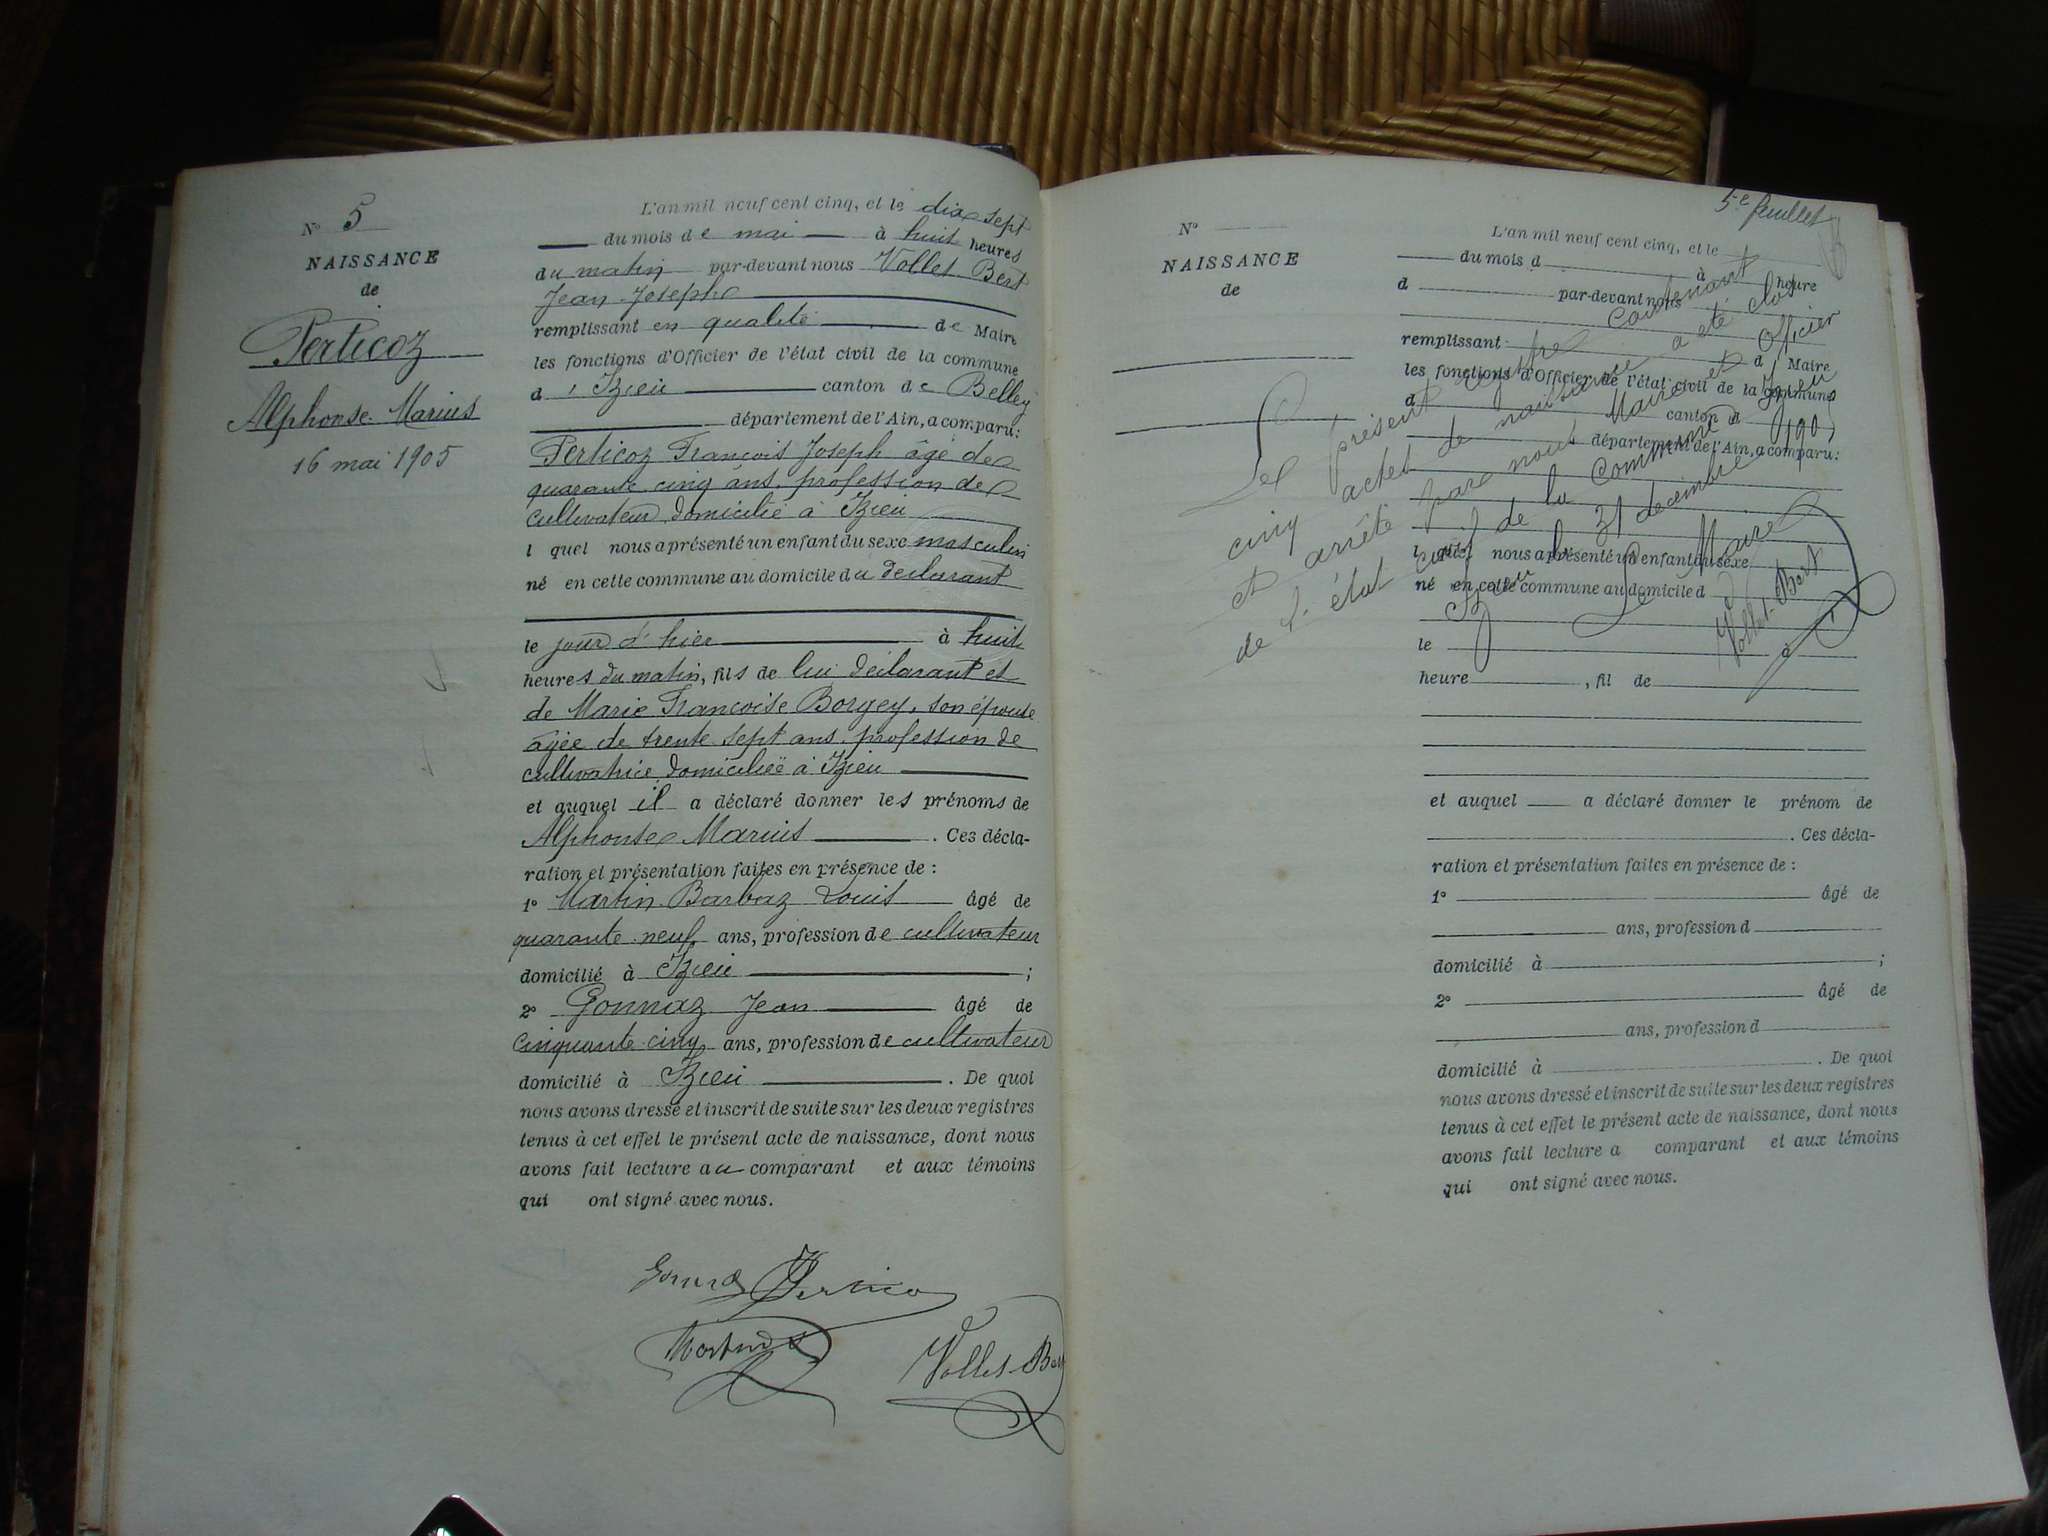 N° 5
NAISSANCE
de
Perticoz
Alphonse Marius
16 mai 1905
L'an mil neuf cent cinq, et le dix sept
du mois de mai à huit heures
du matin par-devant nous Vollet Bert
Jean Joseph
remplissant en qualité de Maire
les fonctions d'Officier de l'état civil de la commune
d'Izieu canton de Belley
département de l'Ain, a comparu :
Perticoz François Joseph âgé de
quarante cinq ans, profession de
cultivateur domicilié à Izieu
l quel nous a présenté un enfant du sexe masculin
né en cette commune au domicile du déclarant
le jour d'hier à huit
heures du matin, fils de lui déclarant et
de Marie Françoise Borgey, son épouse
âgée de trente sept ans, profession de
cultivatrice domiciliée à Izieu
et auquel il a déclaré donner les prénoms de
Alphonse Marius . Ces décla-
ration et présentation faites en présence de :
1° Martin Barbaz Louis âgé de
quarante neuf ans, profession de cultivateur
domicilié à Izieu ;
2° Gonnaz Jean âgé de
cinquante cinq ans, profession de cultivateur
domicilié à Izieu . De quoi
nous avons dressé et inscrit de suite sur les deux registres
tenus à cet effet le présent acte de naissance, dont nous
avons fait lecture au comparant et aux témoins
qui ont signé avec nous.
Vollet-Bert
5e feuillet
N°
NAISSANCE
de
L'an mil neuf cent cinq, et le
du mois d à heure
d par-devant nous
remplissant d Maire
les fonctions d'Officier de l'état civil de la commune
d canton d
département de l'Ain, a comparu :
l quel nous a présenté un enfant du sexe
né en cette commune au domicile d
le à
heure , fil de
et auquel a déclaré donner le prénom de
. Ces décla-
ration et présentation faites en présence de :
1° âgé de
ans, profession d
domicilié à ;
2° âgé de
ans, profession d
domicilié à . De quoi
nous avons dressé et inscrit de suite sur les deux registres
tenus à cet effet le présent acte de naissance, dont nous
avons fait lecture a comparant et aux témoins
qui ont signé avec nous.
Le présent registre contenant
cinq actes de naissance a été clos
et arrêté par nous Maire et Officier
de l'état civil de la Commune d'Izieu
Izieu le 31 décembre 1905
Le Maire
Vollet-Bert